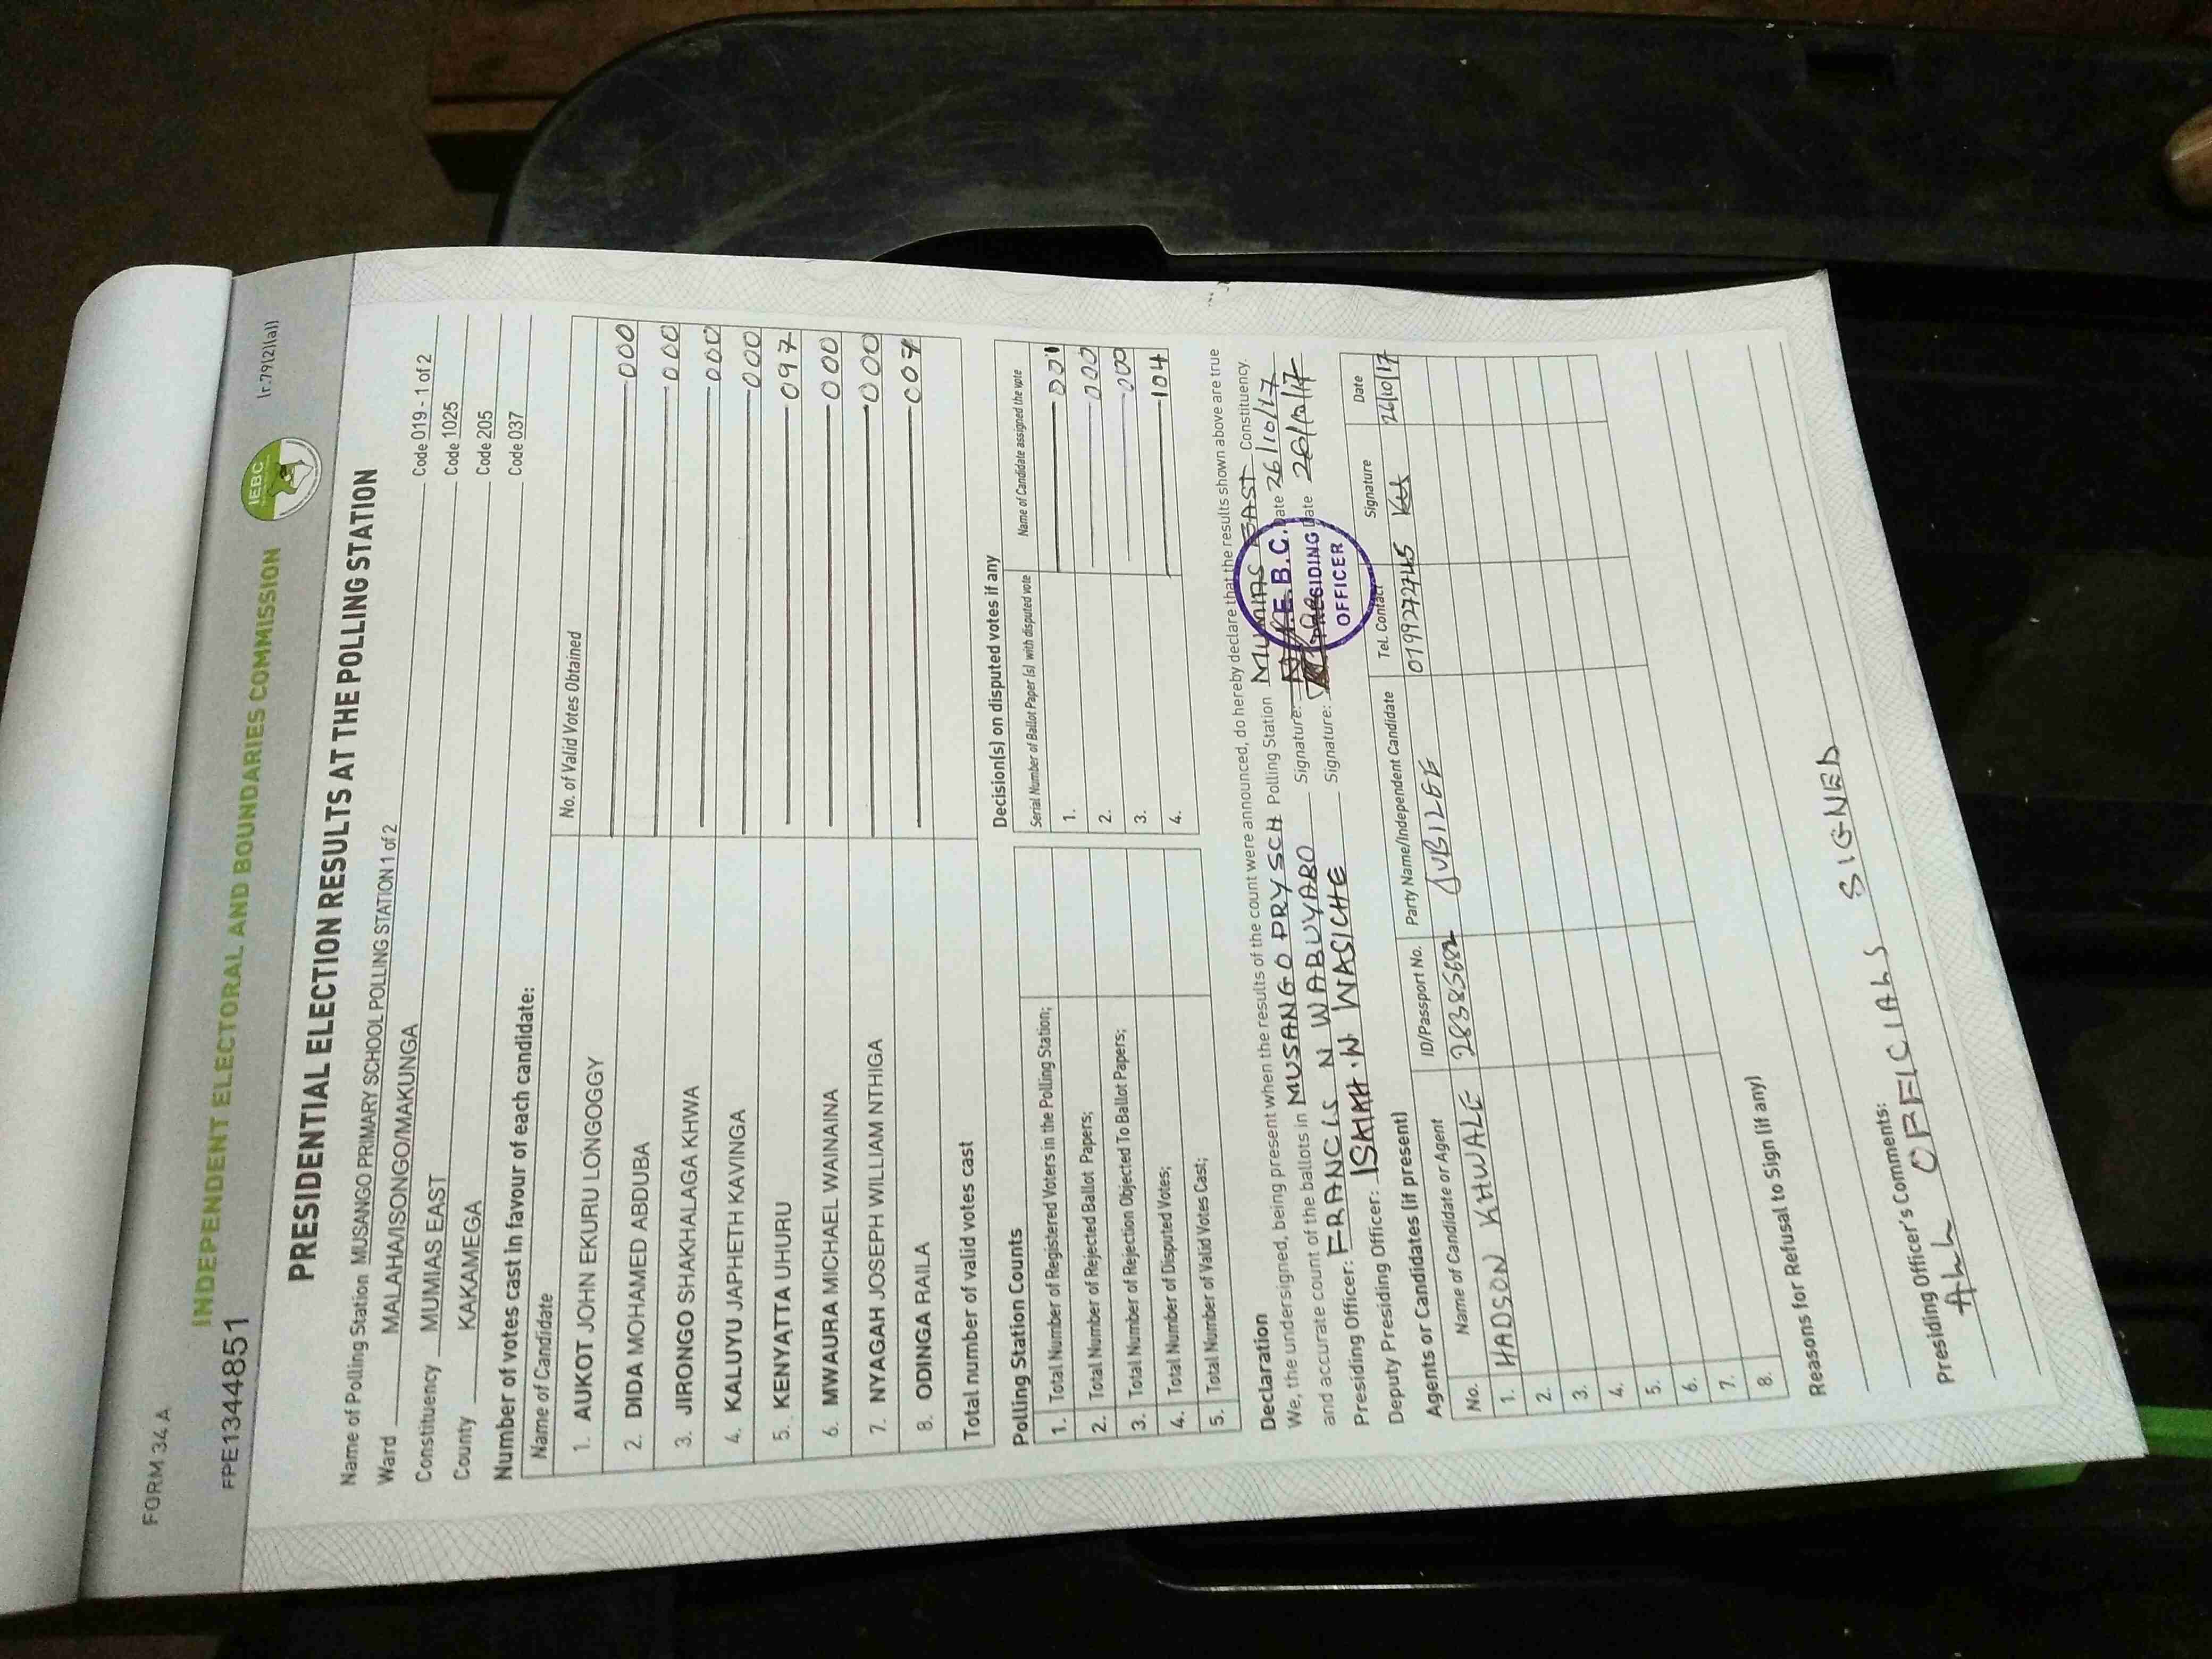 FORM 34 A
(r.79(2)(a))
FPE1344851
INDEPENDENT ELECTORAL AND BOUNDARIES COMMISSION
IEBC
PRESIDENTIAL ELECTION RESULTS AT THE POLLING STATION
Name of Polling Station MUSANGO PRIMARY SCHOOL POLLING STATION 1 of 2 Code 019 - 1 of 2
Ward MALAHA/ISONGO/MAKUNGA Code 1025
Constituency MUMIAS EAST Code 205
County KAKAMEGA Code 037
Number of votes cast in favour of each candidate:
Name of Candidate No. of Valid Votes Obtained
1. AUKOT JOHN EKURU LONGOGGY 000
2. DIDA MOHAMED ABDUBA 000
3. JIRONGO SHAKHALAGA KHWA 000
4. KALUYU JAPHETH KAVINGA 000
5. KENYATTA UHURU 097
6. MWAURA MICHAEL WAINAINA 000
7. NYAGAH JOSEPH WILLIAM NTHIGA 000
8. ODINGA RAILA 007
Total number of valid votes cast
Polling Station Counts
1. Total Number of Registered Voters in the Polling Station;
2. Total Number of Rejected Ballot Papers;
3. Total Number of Rejection Objected To Ballot Papers;
4. Total Number of Disputed Votes;
5. Total Number of Valid Votes Cast;
Decision(s) on disputed votes if any
Serial Number of Ballot Paper (s) with disputed vote Name of Candidate assigned the vote
1. 001
2. 000
3. 000
4. 104
Declaration
We, the undersigned, being present when the results of the count were announced, do hereby declare that the results shown above are true
and accurate count of the ballots in MUSANGO PRY SCH Polling Station MUMIAS EAST Constituency.
Presiding Officer: FRANCIS N WABUYABO Signature: Date 26/10/17
Deputy Presiding Officer: ISAIAH.W WASICHE Signature: Date 26/10/17
I.E.B.C.
PRESIDING
OFFICER
Agents or Candidates (if present)
No. Name of Candidate or Agent ID/Passport No. Party Name/Independent Candidate Tel. Contact Signature Date
1. HADSON KHWALE 28385682 JUBILEE 0799272745 26/10/17
2.
3.
4.
5.
6.
7.
8.
Reasons for Refusal to Sign (if any)
Presiding Officer's Comments:
ALL OFFICIALS SIGNED